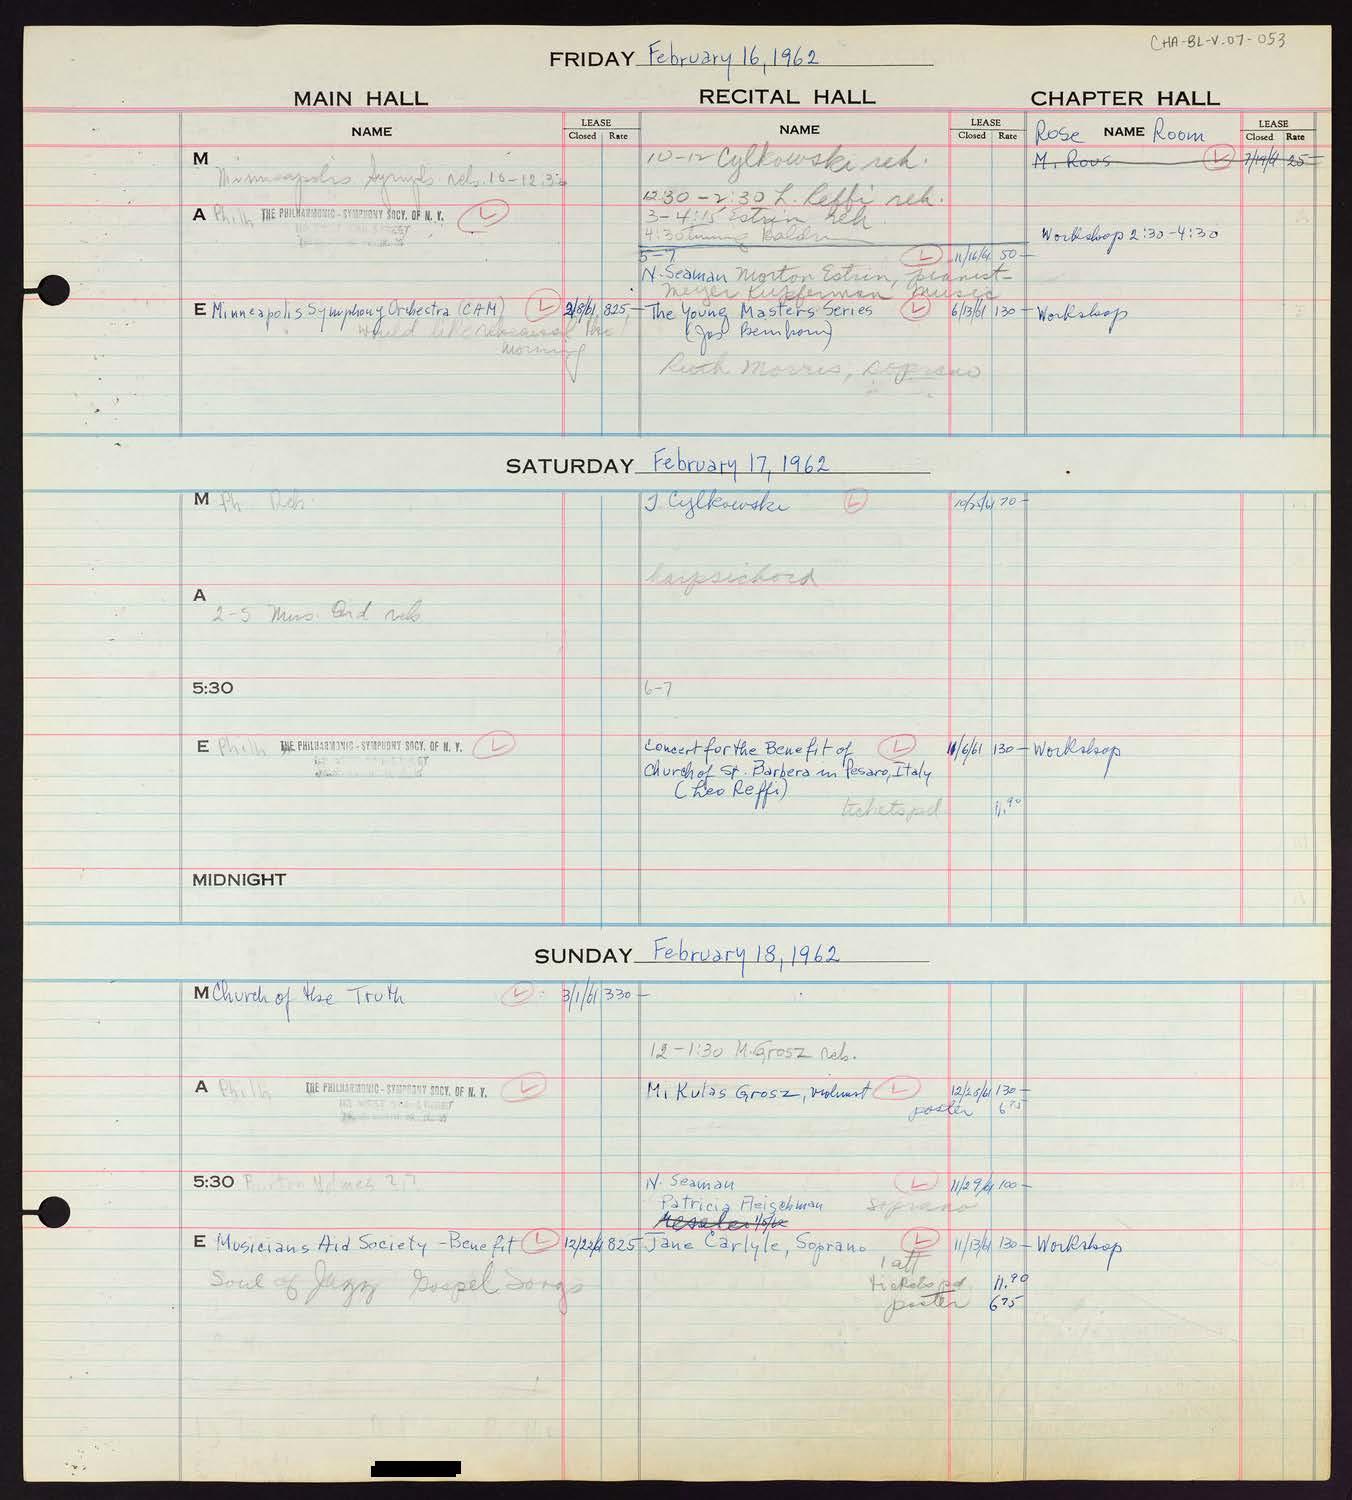 CHA-BL-V.07-053
FRIDAY February 16, 1962
MAIN HALL RECITAL HALL CHAPTER HALL
NAME LEASE Closed Rate NAME LEASE Closed Rate Rose NAME Room LEASE Closed Rate
M
Minneapolis Symph. reh. 10-12:30
10-12 Cylkowski reh.
M. Rous L 7/19/61 25-
12:30-2:30 L. Reffi reh.
A Philh THE PHILHARMONIC-SYMPHONY SOCY. OF N. Y. L
3-4:15 Estrin reh
4:30 tuning Baldwin
Workshop 2:30-4:30
5-7 L 11/16/61 50-
N. Seaman Morton Estrin, pianist-
Meyer Kupferman music
E Minneapolis Symphony Orchestra (CAM) L 2/8/61 825- The Young Masters Series L 6/13/61 130- Workshop
would like rehearsal the
morning
(Jos
Ruth Morris, soprano
SATURDAY February 17, 1962
M Ph Reh.
J Cylkowski L 10/25/61 70-
harpsichord
A
2-5 Mus. Aid reh
5:30
6-7
E Philh THE PHILHARMONIC-SYMPHONY SOCY. OF N. Y. L
Concert for the Benefit of L 11/6/61 130- Workshop
Church of St. Barbera in Pesaro, Italy
(Leo Reffi)
tickets pd 11.90
MIDNIGHT
SUNDAY February 18, 1962
M Church of the Truth L 3/1/61 330-
12-1:30 M. Grosz reh.
A Philh THE PHILHARMONIC-SYMPHONY SOCY. OF N. Y. L
M. Kulas Grosz, violinist L 12/20/61 130-
poster 6 75
5:30 Burton Holmes
N. Seaman L 11/29/61 100-
Patricia Fleischman soprano
E Musicians Aid Society-Benefit L 12/22/61 825 Jane Carlyle, Soprano L 11/13/61 130- Workshop
1 att
Soul of Jazz Gospel Songs
tickets pd. 11.90
poster 6 75